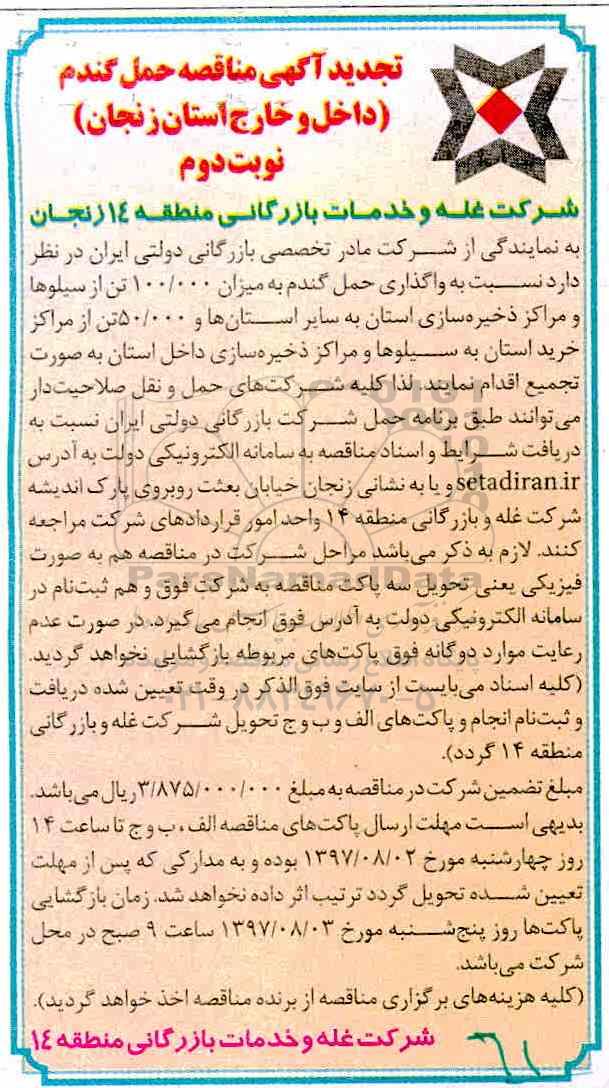 تجدید آگهی مناقصه حمل گندم
(داخل و خارج استان زنجان)
نوبت دوم
شرکت غله و خدمات بازرگانی منطقه ۱۴ زنجان
به نمایندگی از شرکت مادر تخصصی بازرگانی دولتی ایران در نظر
دارد نسبت به واگذاری حمل گندم به میزان ۱۰۰/۰۰۰ تن از سیلوها
و مراکز ذخیره‌سازی استان به سایر استان‌ها و ۵۰/۰۰۰تن از مراکز
خرید استان به سیلوها و مراکز ذخیره‌سازی داخل استان به صورت
تجمیع اقدام نمایند. لذا کلیه شرکت‌های حمل و نقل صلاحیت‌دار
می‌توانند طبق برنامه حمل شرکت بازرگانی دولتی ایران نسبت به
دریافت شرایط و اسناد مناقصه به سامانه الکترونیکی دولت به آدرس
setadiran.ir و یا به نشانی زنجان خیابان بعثت روبروی پارک اندیشه
شرکت غله و بازرگانی منطقه ۱۴ واحد امور قراردادهای شرکت مراجعه
کنند. لازم به ذکر می‌باشد مراحل شرکت در مناقصه هم به صورت
فیزیکی یعنی تحویل سه پاکت مناقصه به شرکت فوق و هم ثبت‌نام در
سامانه الکترونیکی دولت به آدرس فوق انجام می‌گیرد. در صورت عدم
رعایت موارد دوگانه فوق پاکت‌های مربوطه بازگشایی نخواهد گردید.
(کلیه اسناد می‌بایست از سایت فوق‌الذکر در وقت تعیین شده دریافت
و ثبت‌نام انجام و پاکت‌های الف و ب و ج تحویل شرکت غله و بازرگانی
منطقه ۱۴ گردد).
مبلغ تضمین شرکت در مناقصه به مبلغ ۳/۸۷۵/۰۰۰/۰۰۰ ریال می‌باشد.
بدیهی است مهلت ارسال پاکت‌های مناقصه الف، ب و ج تا ساعت ۱۴
روز چهارشنبه مورخ ۱۳۹۷/۰۸/۰۲ بوده و به مدارکی که پس از مهلت
تعیین شده تحویل گردد ترتیب اثر داده نخواهد شد. زمان بازگشایی
پاکت‌ها روز پنج‌شنبه مورخ ۱۳۹۷/۰۸/۰۳ ساعت ۹ صبح در محل
شرکت می‌باشد.
(کلیه هزینه‌های برگزاری مناقصه از برنده مناقصه اخذ خواهد گردید).
شرکت غله و خدمات بازرگانی منطقه ۱۴
ParsNamadData
۰۲۱-۸۸۳۴۹۶۷۰-۵